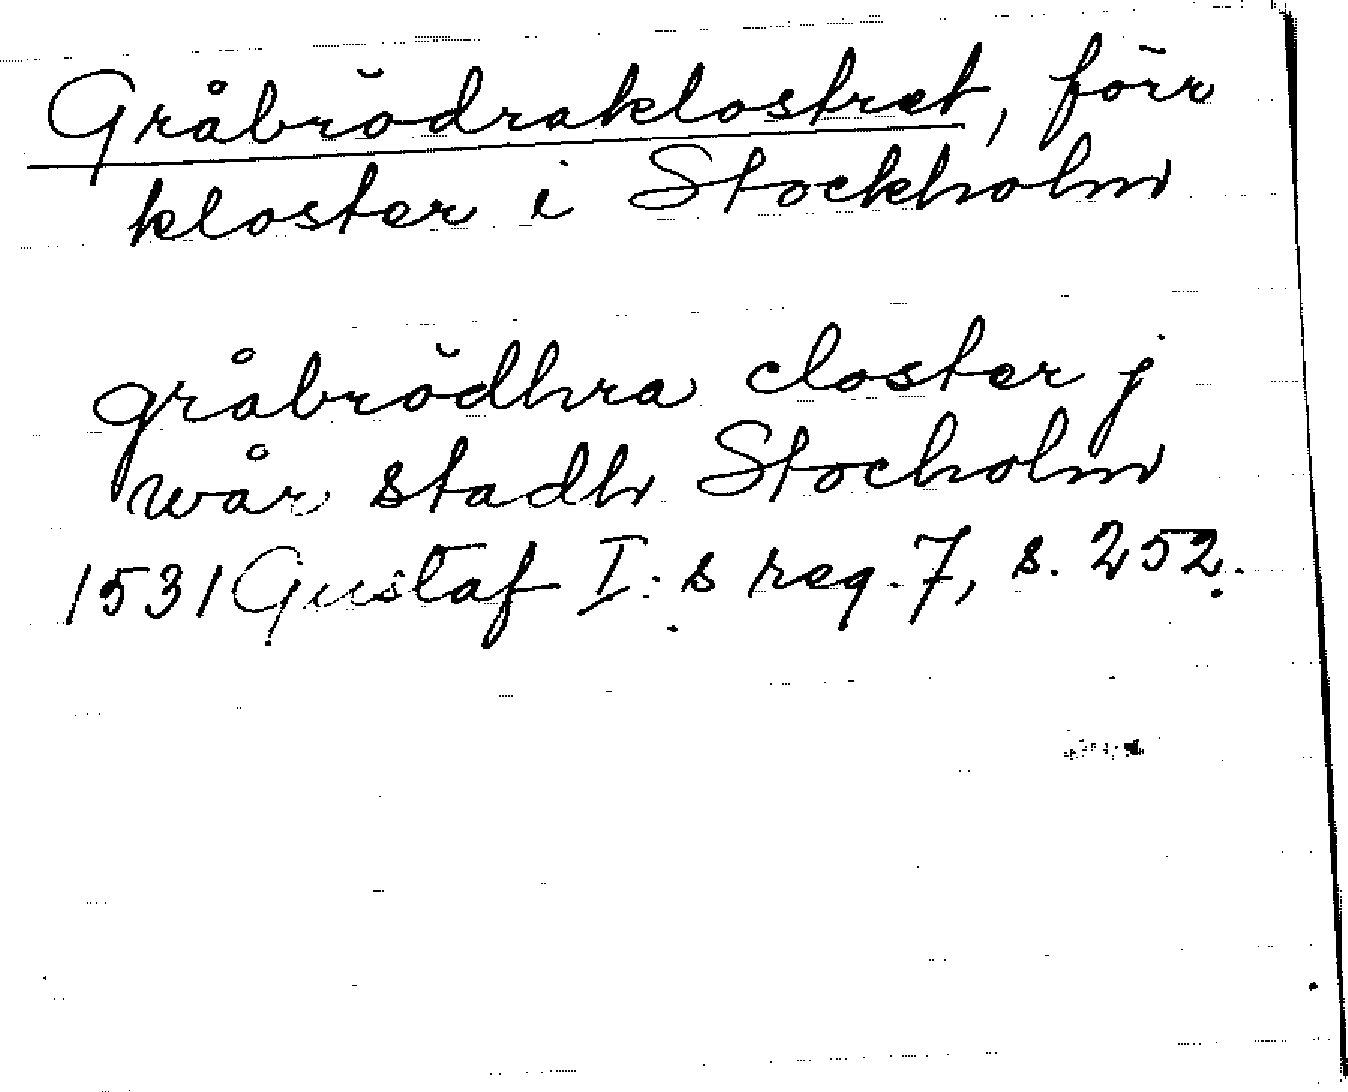 Gråbrödraklostret, förr
kloster i Stockholm
gråbrödhra closter j
wår stadh Stocholm
1531 Gustaf I:s reg. 7, s. 252.